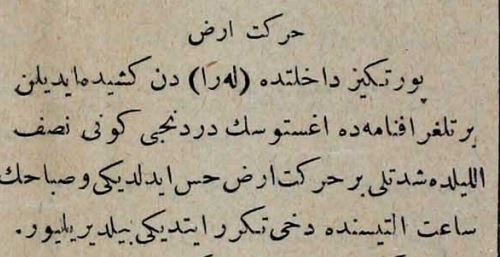 حركت ارض
پورتكيز داخلنده (لەرا) دن كشيده مايديلن
بر تلغرافنامه‌ده اغستوسك دردنجى كونى نصف
الليلده شدتلى بر حركت ارض حس ايدلديكى وصباحك
ساعت التيسنده دخى تكرر ايتديكى بيلديريليور.